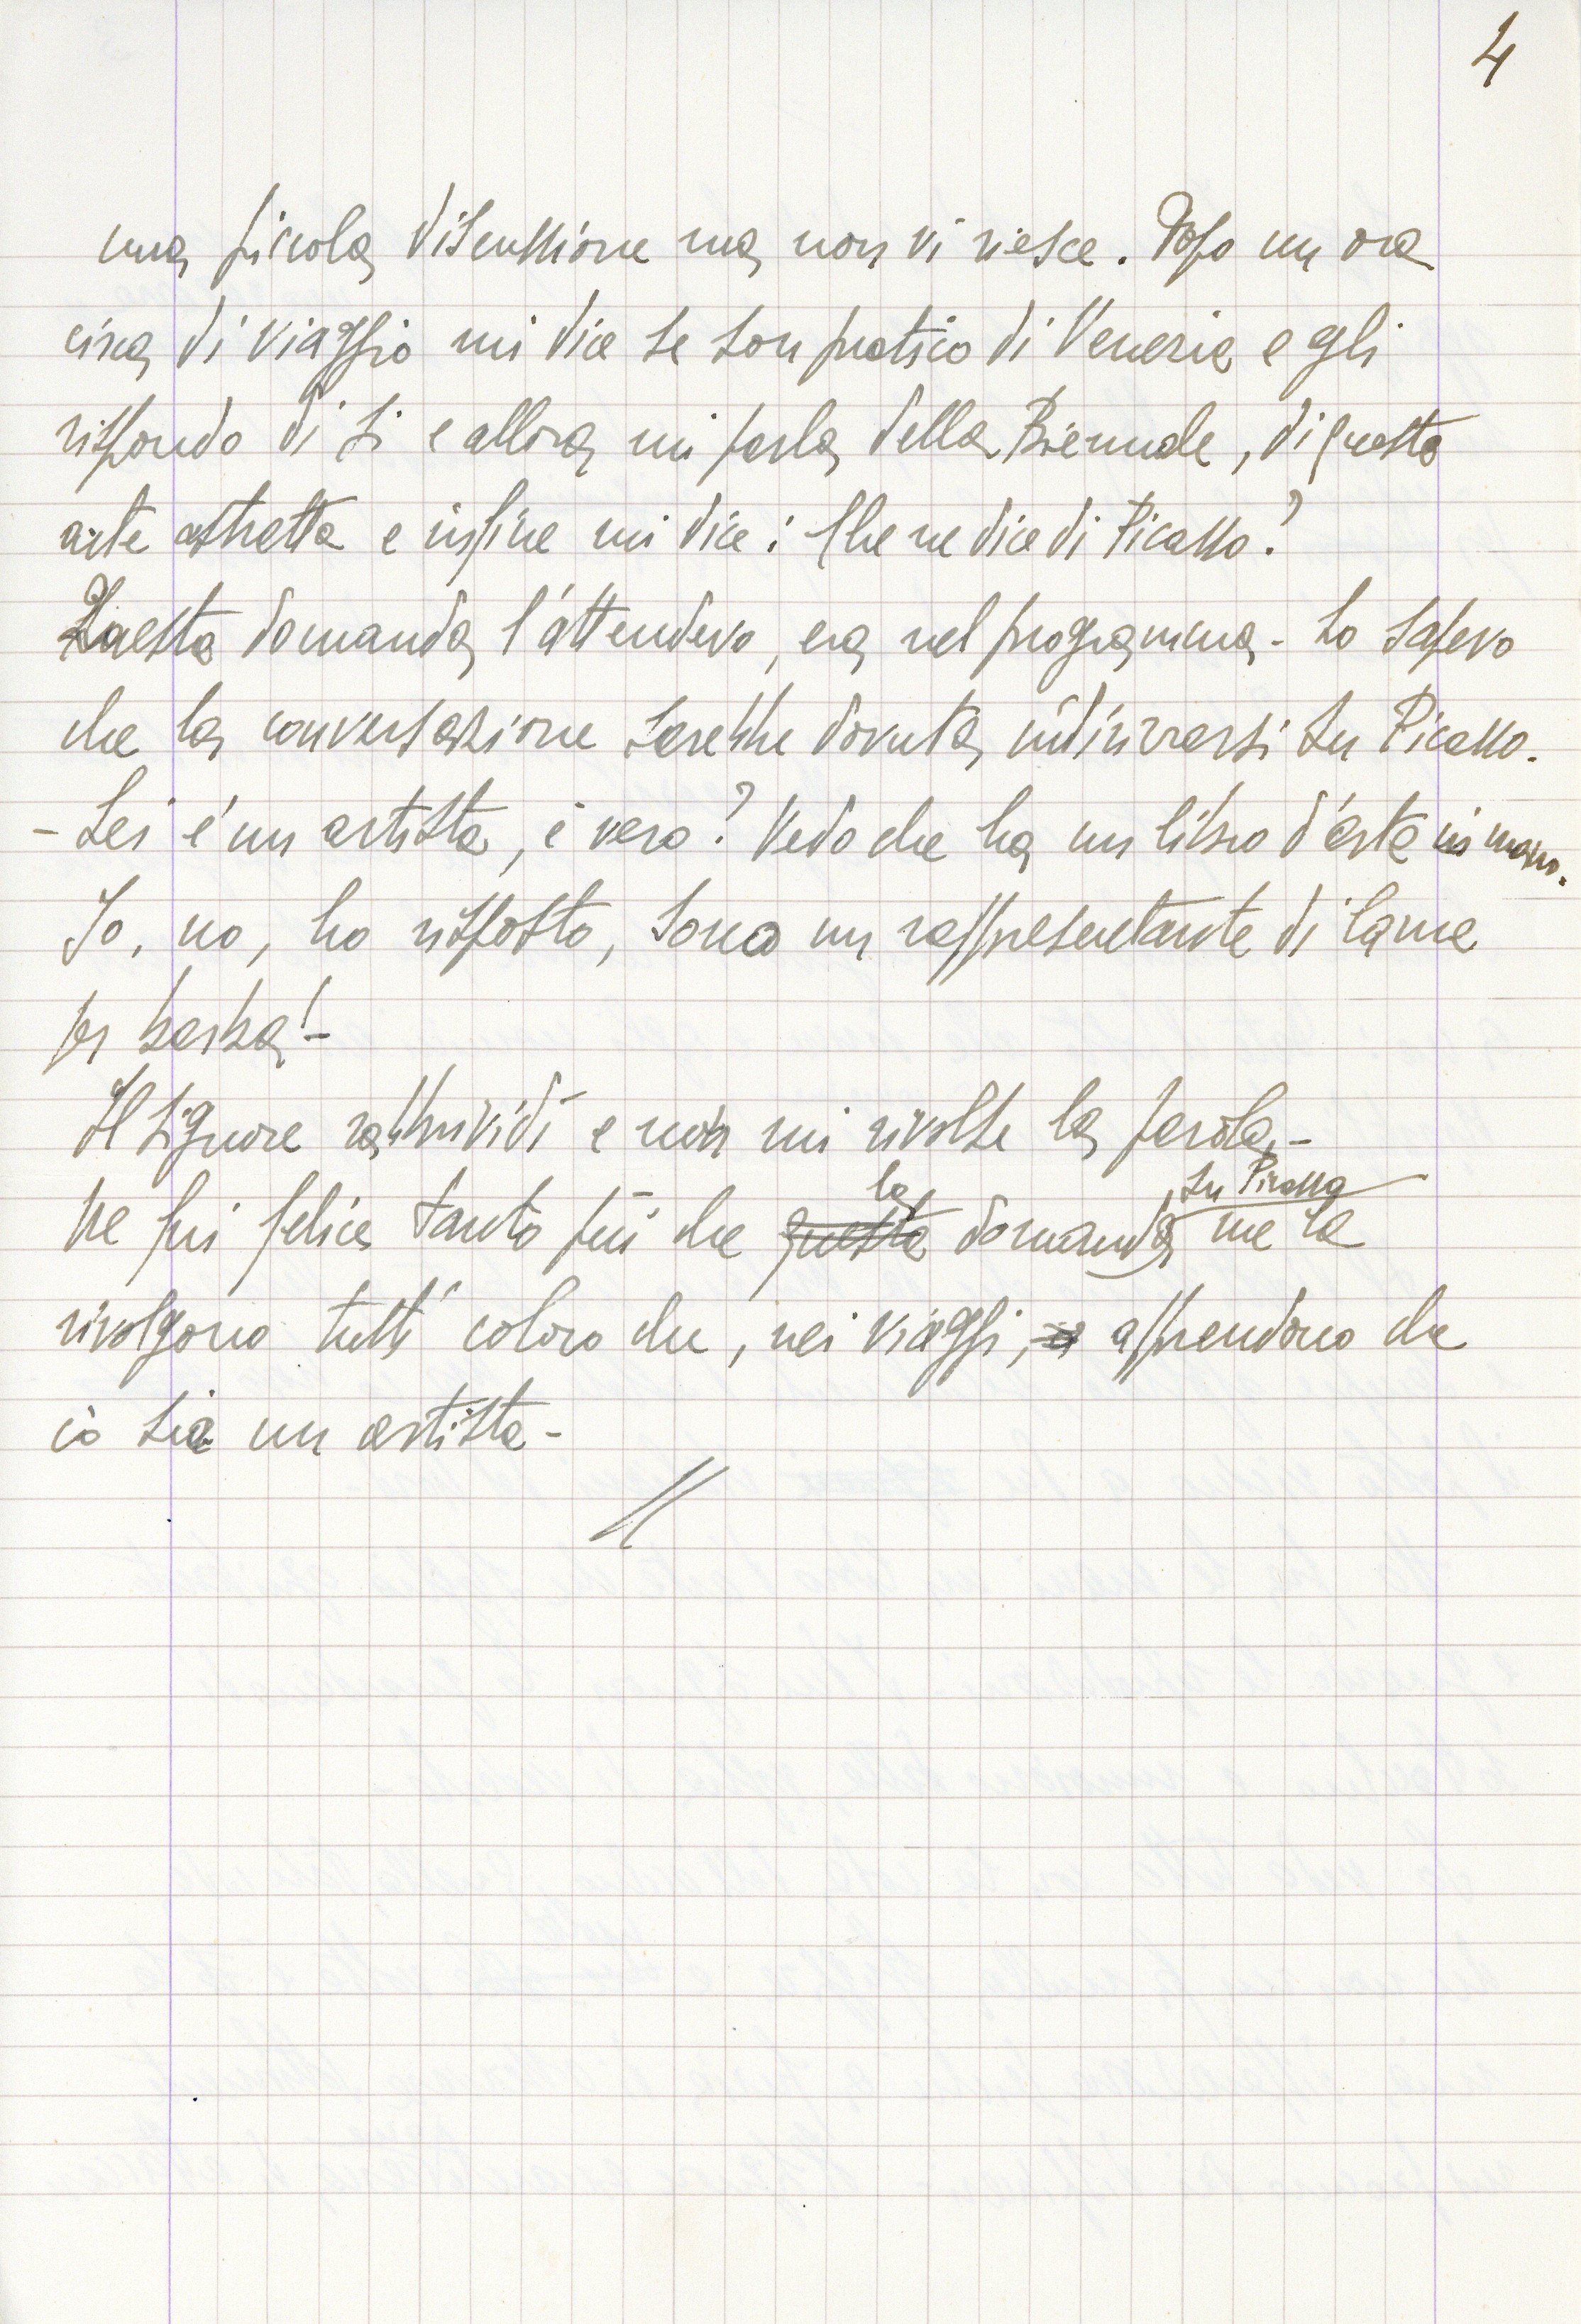 4
una piccola discussione ma non vi riesce. Dopo un ora
circa di viaggio mi dice se son pratico di Venezia e gli
rispondo di si e allora mi parla della Biennale, di questa
arte astratta e infine mi dice: Che ne dice di Picasso?
Questa domanda l'attendevo, era nel programma - Lo sapevo
che la conversazione sarebbe dovuta indirizzarsi su Picasso.
- Lei é un artista, é vero? Vedo che ha un libro d'arte in mano.
Io, no, ho risposto, sono un rappresentante di lame
per barba! -
Il signore rabbrividì e non mi rivolse la parola -
Ne fui felice tanto più che questa la domanda, su Picasso me la
rivolgono tutti coloro che, nei viaggi, apprendono che
io sia un artista -